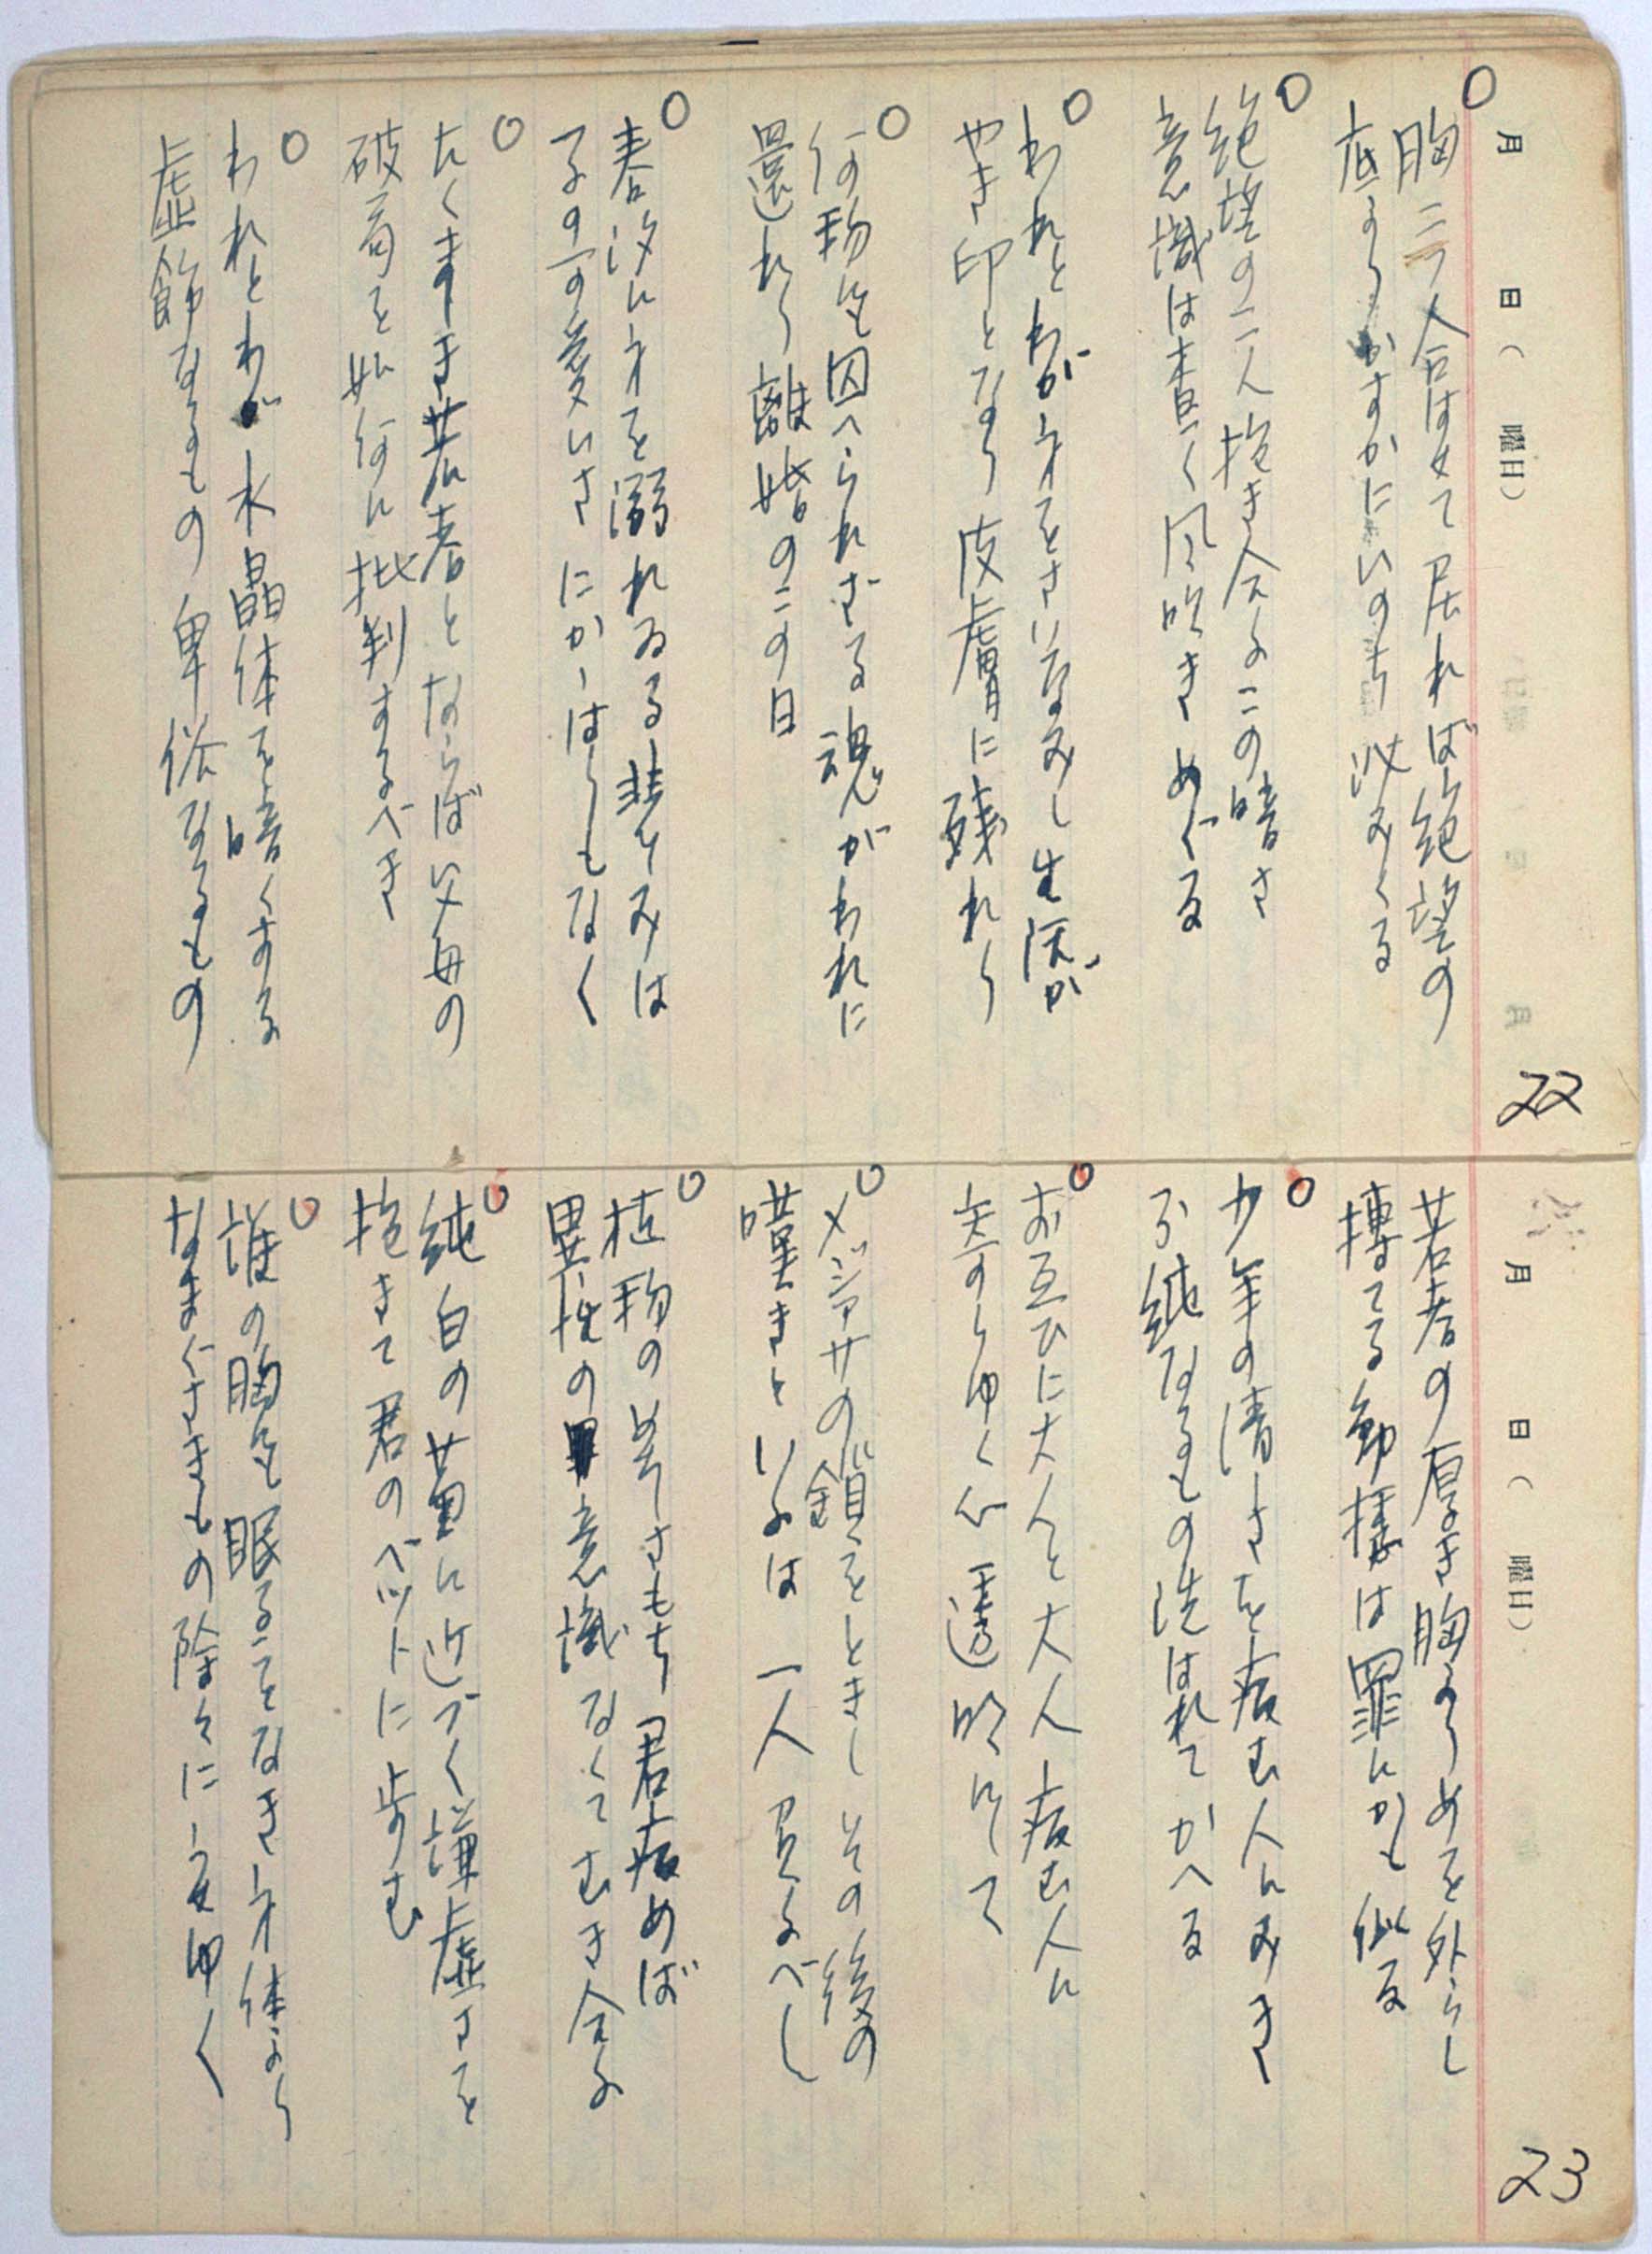 月 日( 曜日)
22
○
胸二つ合はせて居れば絶望の
底よりかすかにいのち汲みくる
○
絶望の二人抱き合ふこの暗さ
意識は杳く風吹きめぐる
○
われとわが身をさいなみし生活が
やき印となり皮膚に残れり
○
何物にも囚へられざる魂がわれに
還れり離婚のこの日
○
春汐に身を溺れゐる悲しみは
子の愛しさにかゝはりもなく
○
たくましき若者とならば父母の
破局を如何に批判するべき
○
われとわが水晶体を暗くする
虚飾なるもの卑俗なるもの
月 日( 曜日)
23
若者の厚き胸よりめを外らし
搏てる動悸は罪にかも似る
○
少年の清さを病む人にみき
不純なるもの洗はれてかへる
○
お互ひに大人と大人病む人に
寄りゆく心透明にして
○
メヂサの鎖をときしその後の
嘆きといふは一人见るべし
○
植物の如しさもち君病めば
異性の意識なくてむき合ふ
○
純白の菌に近づく謙虚さを
抱きて君のベットに歩む
○
誰の胸にも眠ることなき身体より
なまぐさきもの除々にうせゆく